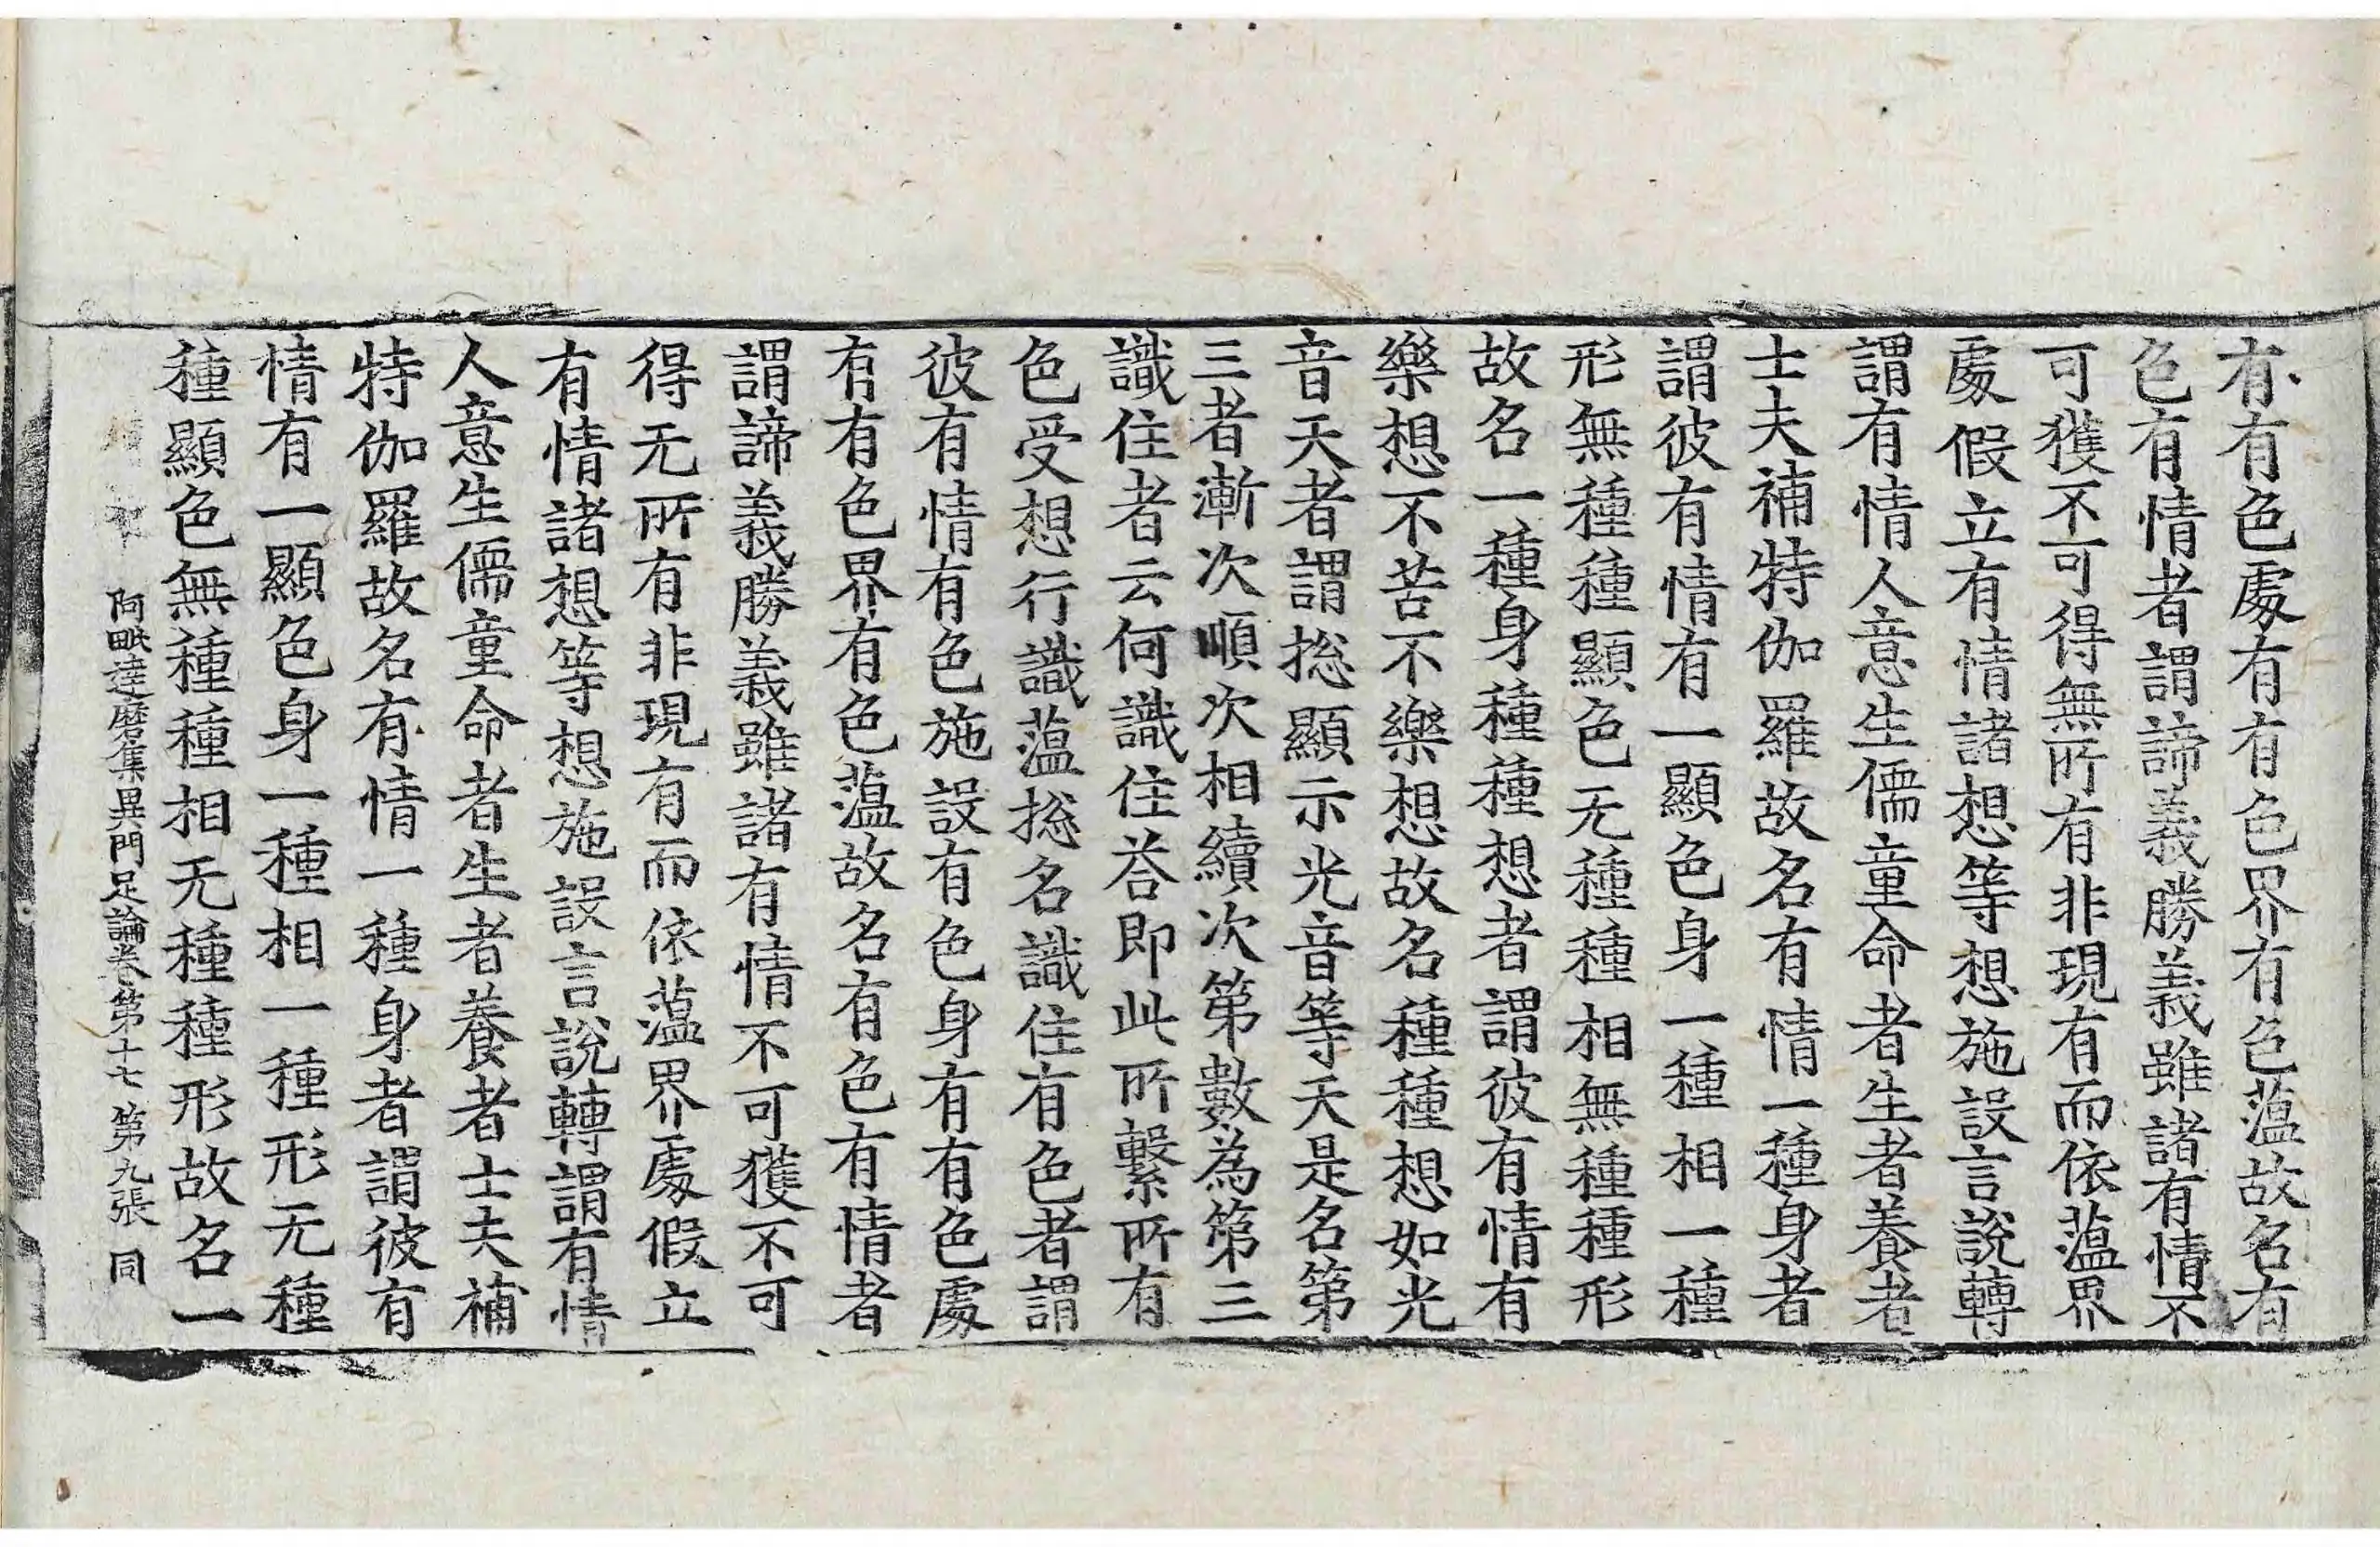 有有色處有有色界有色薀故名有
色有情者謂諦義勝義雖諸有情不
可獲不可得無所有非現有而依薀界
處假立有情諸想等想施設言說轉
謂有情人意生儒童命者生者養者
士夫補特伽羅故名有情一種身者
謂彼有情有一顯色身一種相一種
形無種種顯色无種種相無種種形
故名一種身種種想者謂彼有情有
樂想不苦不樂想故名種種想如光
音天者謂捴顯示光音等天是名第
三者漸次順次相續次第數為第三
識住者云何識住荅即此所繫所有
色受想行識薀捴名識住有色者謂
彼有情有色施設有色身有有色處
有有色界有色薀故名有色有情者
謂諦義勝義雖諸有情不可獲不可
得无所有非現有而依薀界處假立
有情諸想等想施設言說轉謂有情
人意生儒童命者生者養者士夫補
特伽羅故名有情一種身者謂彼有
情有一顯色身一種相一種形无種
種顯色無種種相无種種形故名一
阿毗達磨集異門足論卷第十七 第九張 同